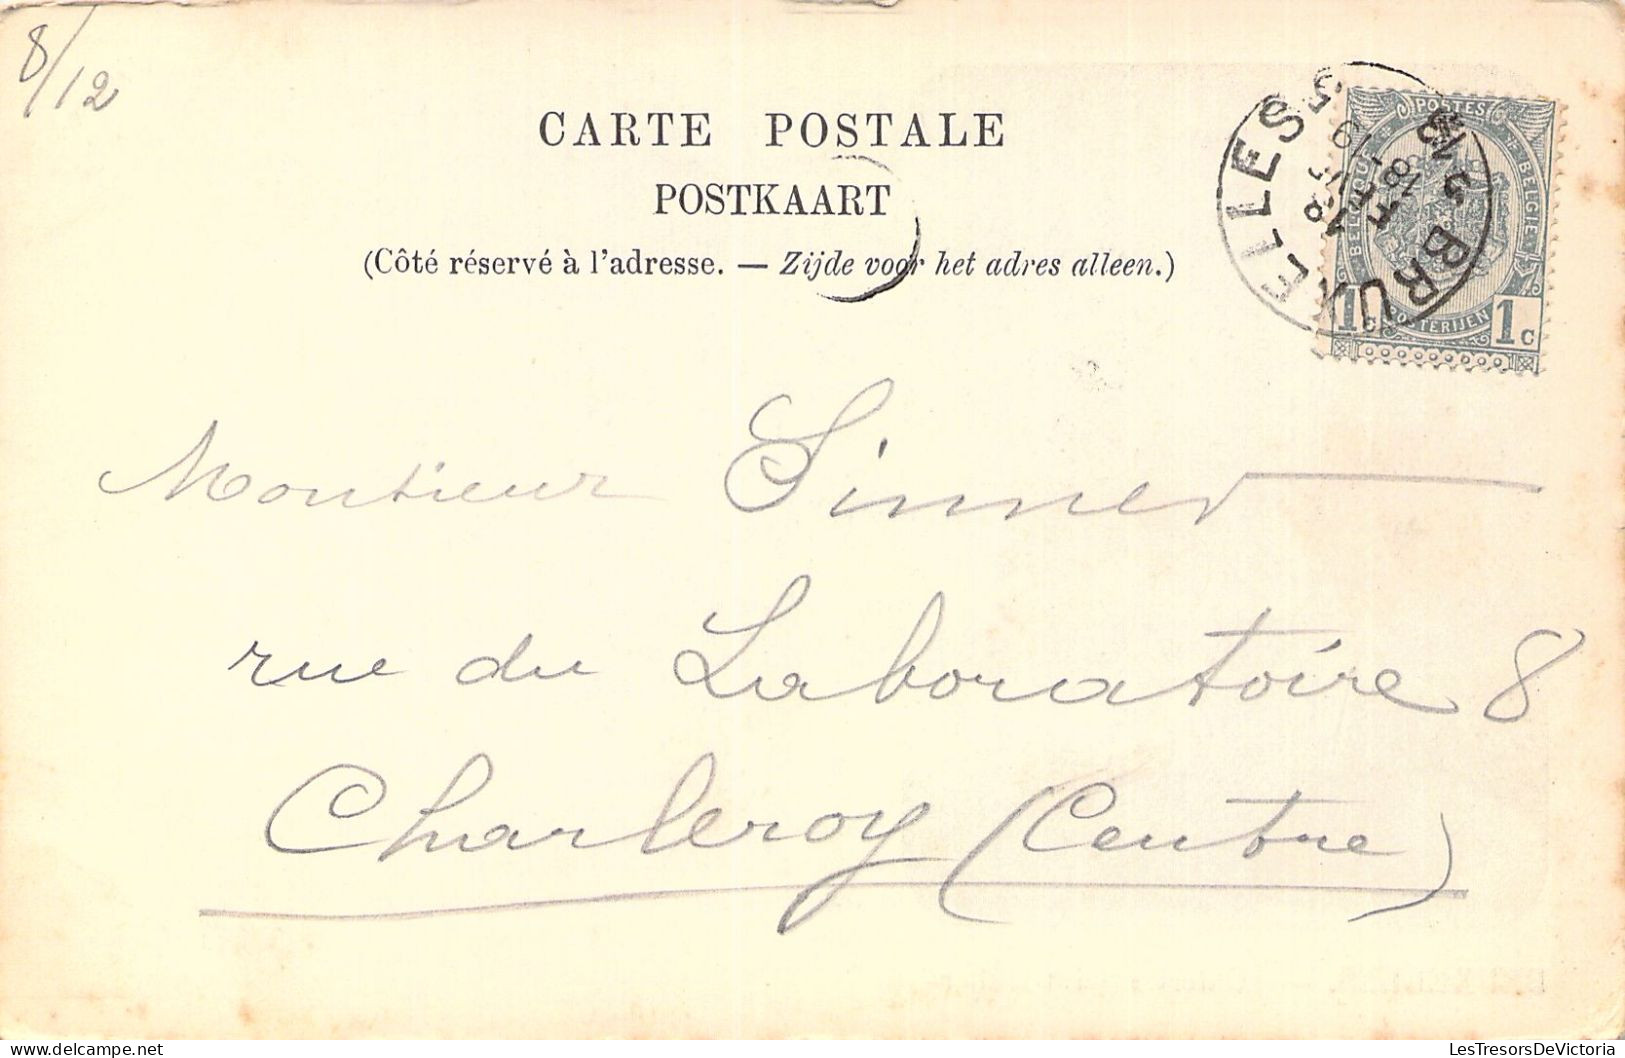 8/12
CARTE POSTALE
POSTKAART
(Côté réservé à l'adresse. — Zijde voor het adres alleen.)
BRUXELLES 5
POSTES
BELGIQUE
BELGIË
POSTERIJEN
1c 1c
Monsieur Sinner
rue du Laboratoire 8
Charleroy (Centre)
LesTresorsDeVictoria